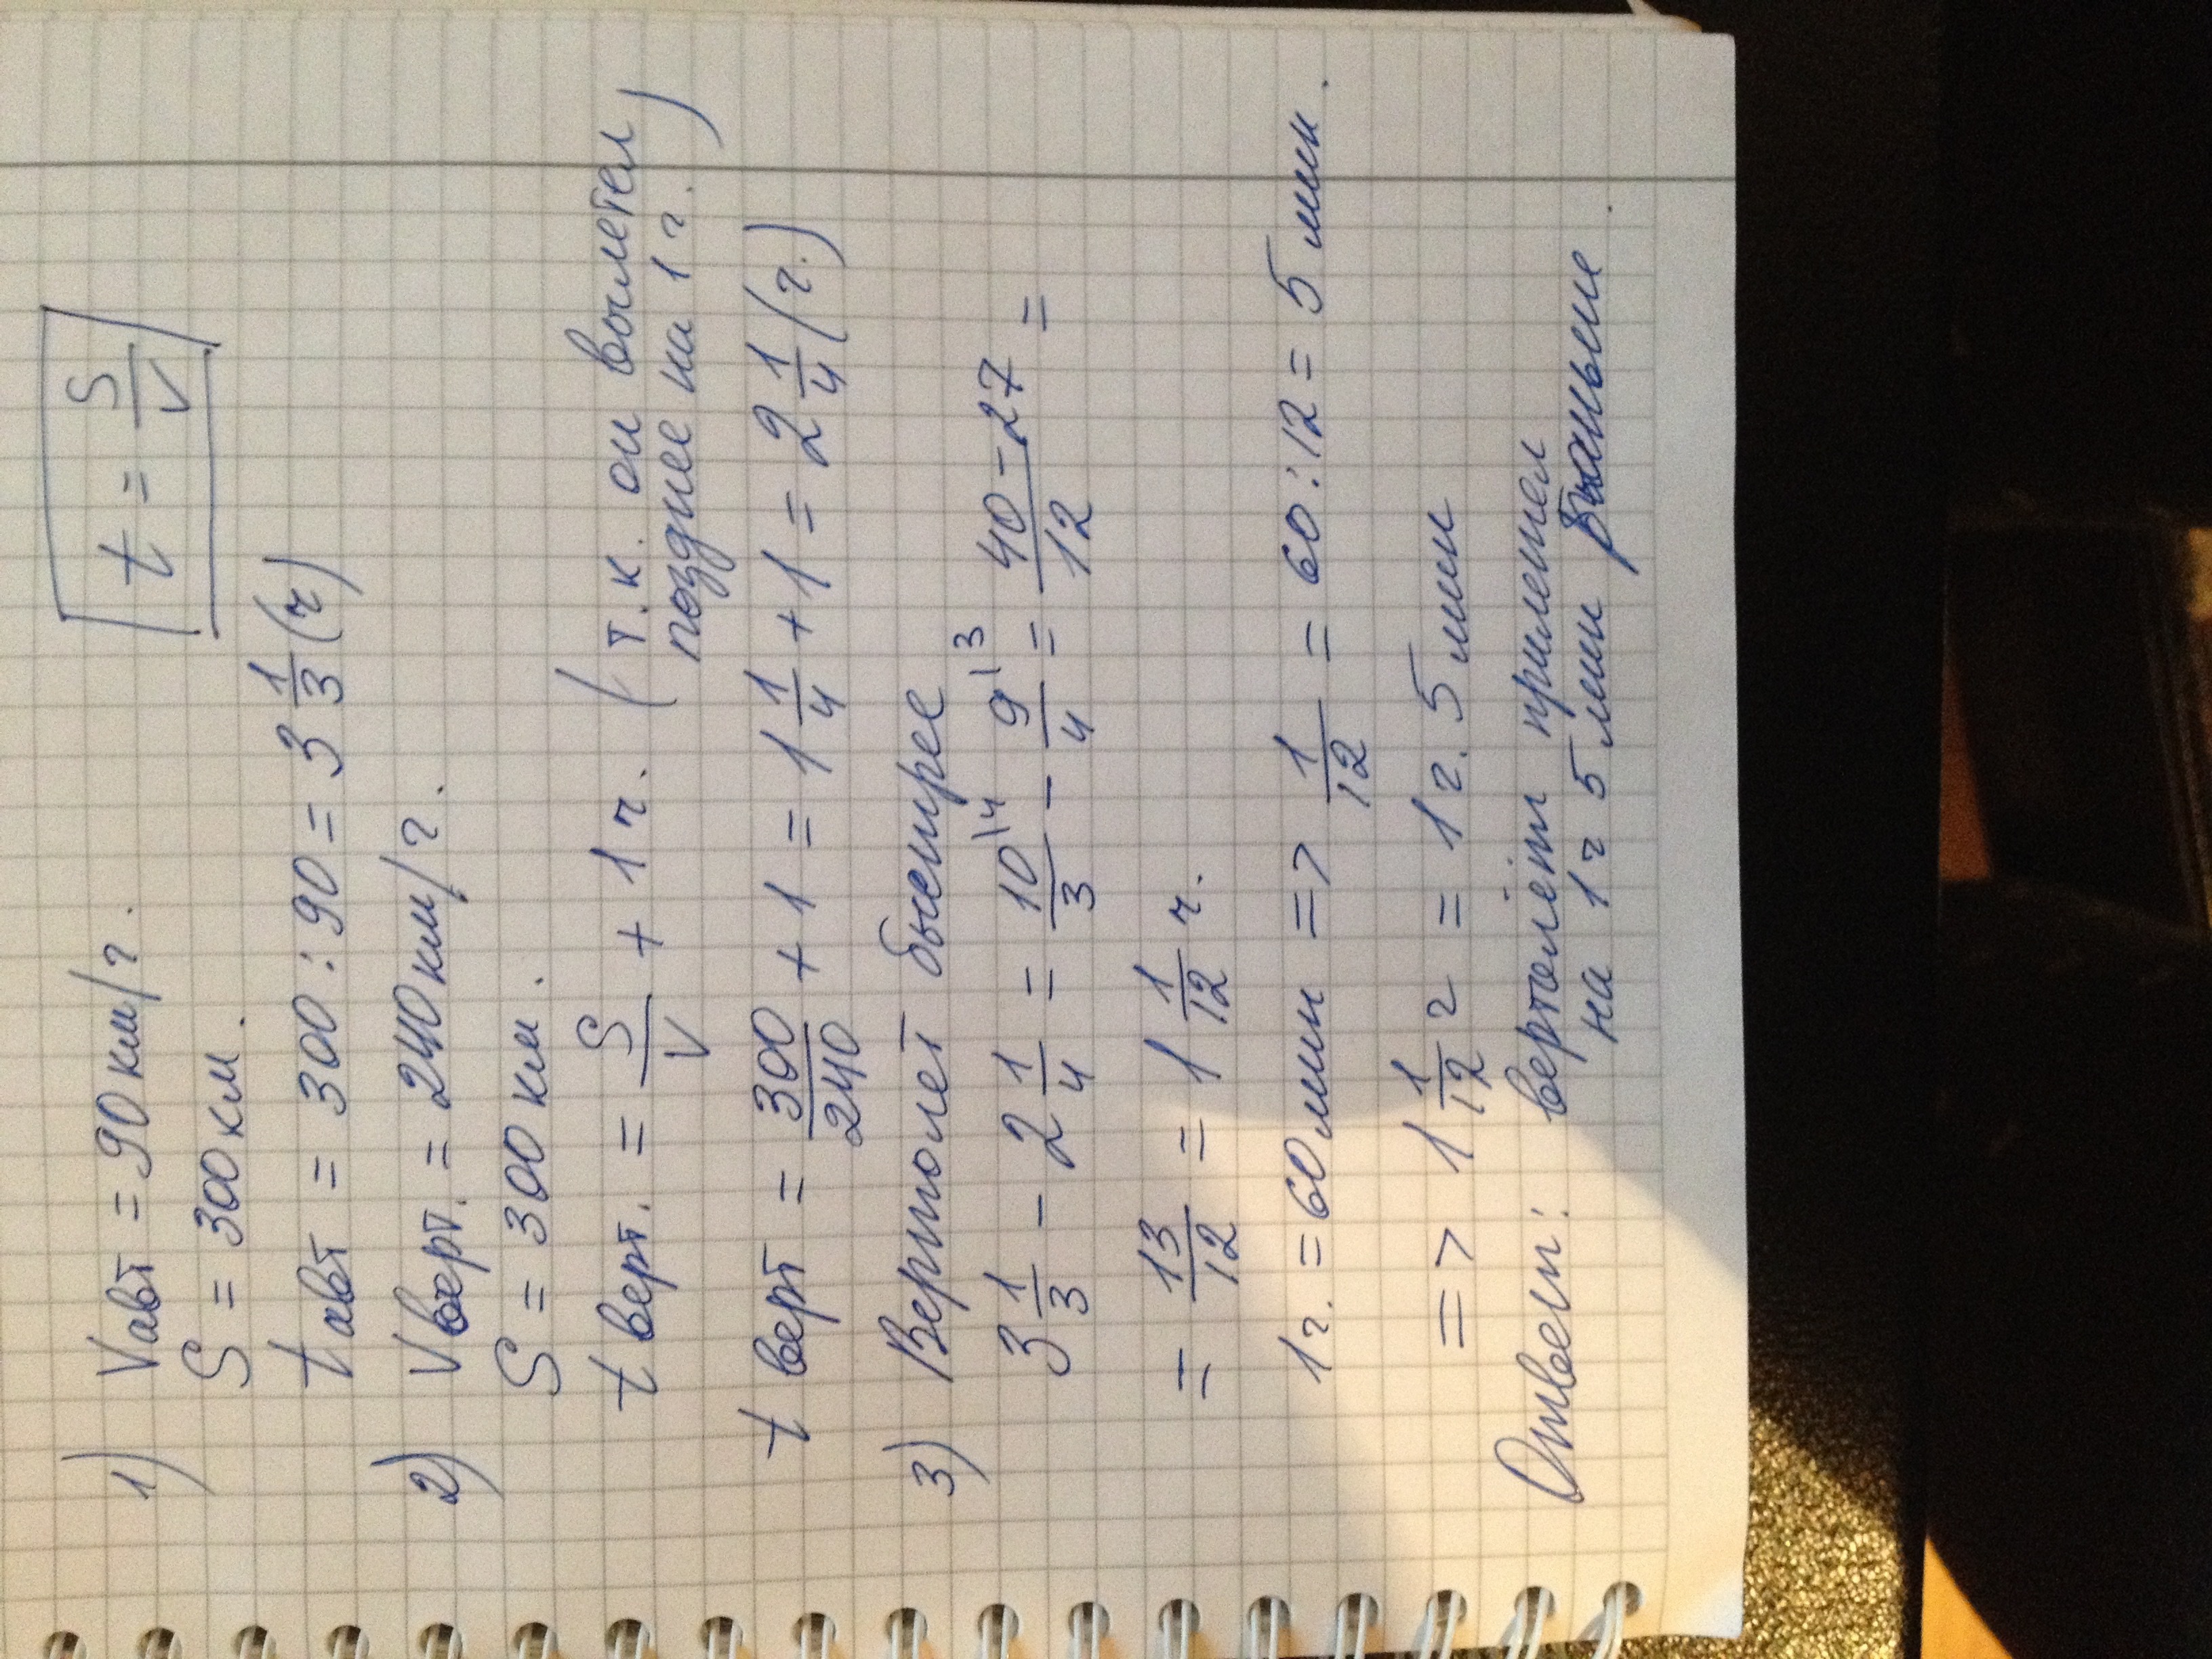 t = S/V
1) Vавт = 90 км/г.
S = 300 км.
t авт = 300 : 90 = 3 1/3 (г)
2) Vверт. = 240 км/г.
S = 300 км.
t верт. = S/V + 1 г. (т.к. он вылетел
позднее на 1 г.)
t верт = 300/240 + 1 = 1 1/4 + 1 = 2 1/4 (г.)
3) Вертолет быстрее
3 1/3 - 2 1/4 = 10\4/3 - 9\3/4 = 40-27/12 =
= 13/12 = 1 1/12 г.
1г. = 60 мин => 1/12 = 60 : 12 = 5 мин.
=> 1 1/12 г = 1 г. 5 мин
Ответ: вертолёт прилетел
на 1 г 5 мин раньше